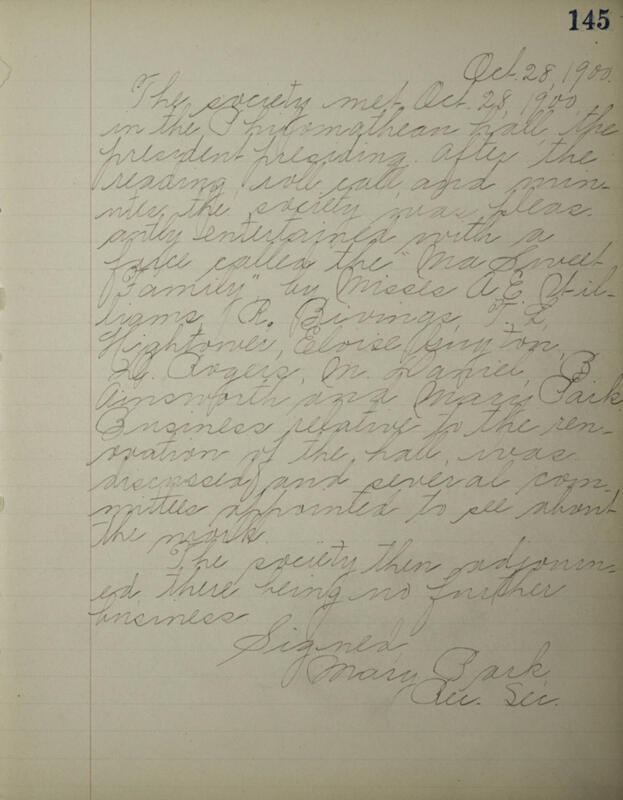 145
Oct. 28, 1900.
The society met Oct. 28, 1900,
in the Philomathean hall, the
president presiding. After the
reading, roll call, and min-
utes, the society was pleas-
antly entertained with a
farce called the "Ma Sweet
Family" by Misses A. E. Wil-
liams, R. Bivings, F. L.
Hightower, Eloise Guyton,
Rogers, M. Daniel, B.
Ainsworth and Mary Park.
Business relative to the ren-
ovation of the hall was
discussed and several com-
mittees appointed to see about
the work.
The society then adjourn-
ed, there being no further
business
Signed,
Mary Park,
Rec. Sec.